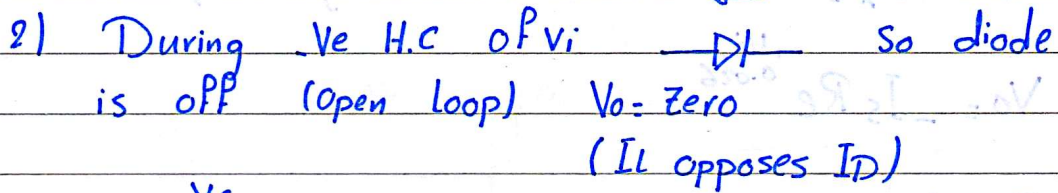 2) During -ve H.C of vi so diode
is off (open loop) Vo = Zero
(IL opposes ID)
Vo